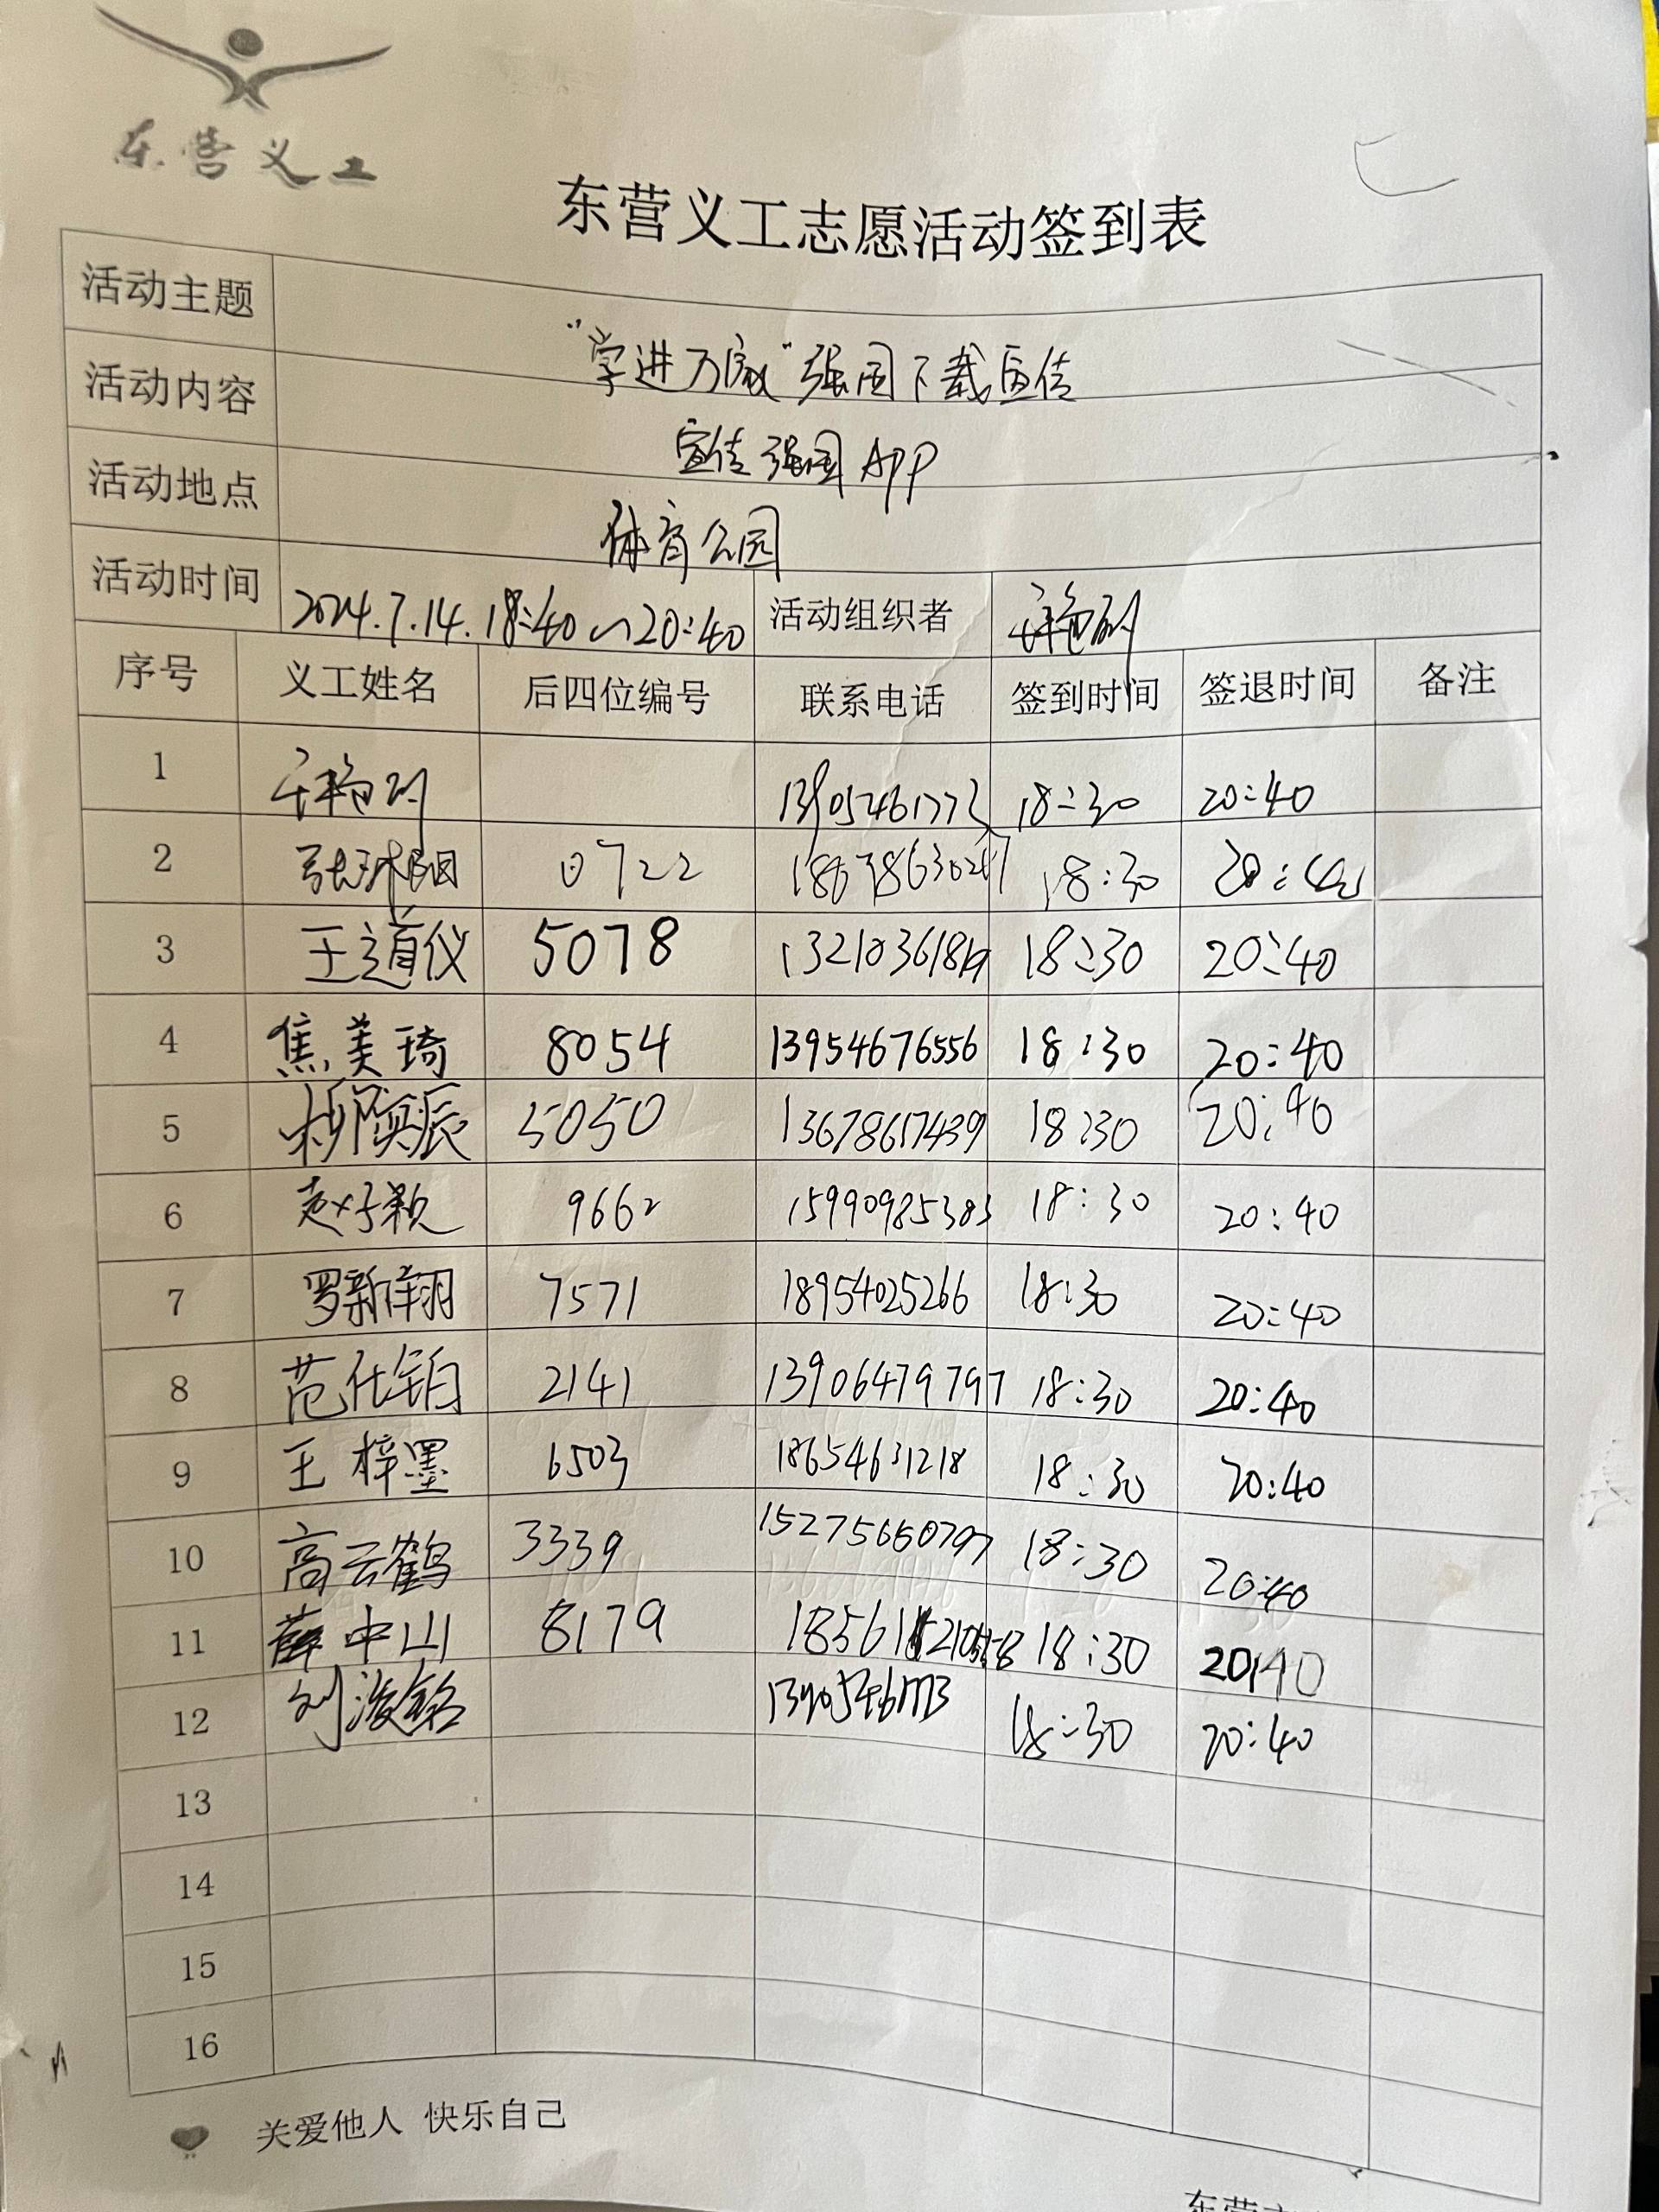 东营义工
东营义工志愿活动签到表
活动主题 "学进万家"强国下载宣传
活动内容 宣传强国APP
活动地点 体育公园
活动时间 2024.7.14. 18:40~20:40 活动组织者
序号 义工姓名 后四位编号 联系电话 签到时间 签退时间 备注
1 13905461773 18:30 20:40
2 0722 18:30 20:40
3 王道仪 5078 18:30 20:40
4 焦美琦 8054 13954676556 18:30 20:40
5 柳奠辰 5050 13678617439 18:30 20:40
6 赵子颖 9662 15990985383 18:30 20:40
7 罗新翔 7571 18954025266 18:30 20:40
8 范仕铂 2141 13906479797 18:30 20:40
9 王梓墨 6503 18654631218 18:30 20:40
10 高云鹤 3339 15275650797 18:30 20:40
11 薛中山 8179 18:30 20:40
12 刘浚铭 13905461773 18:30 20:40
13
14
15
16
关爱他人 快乐自己